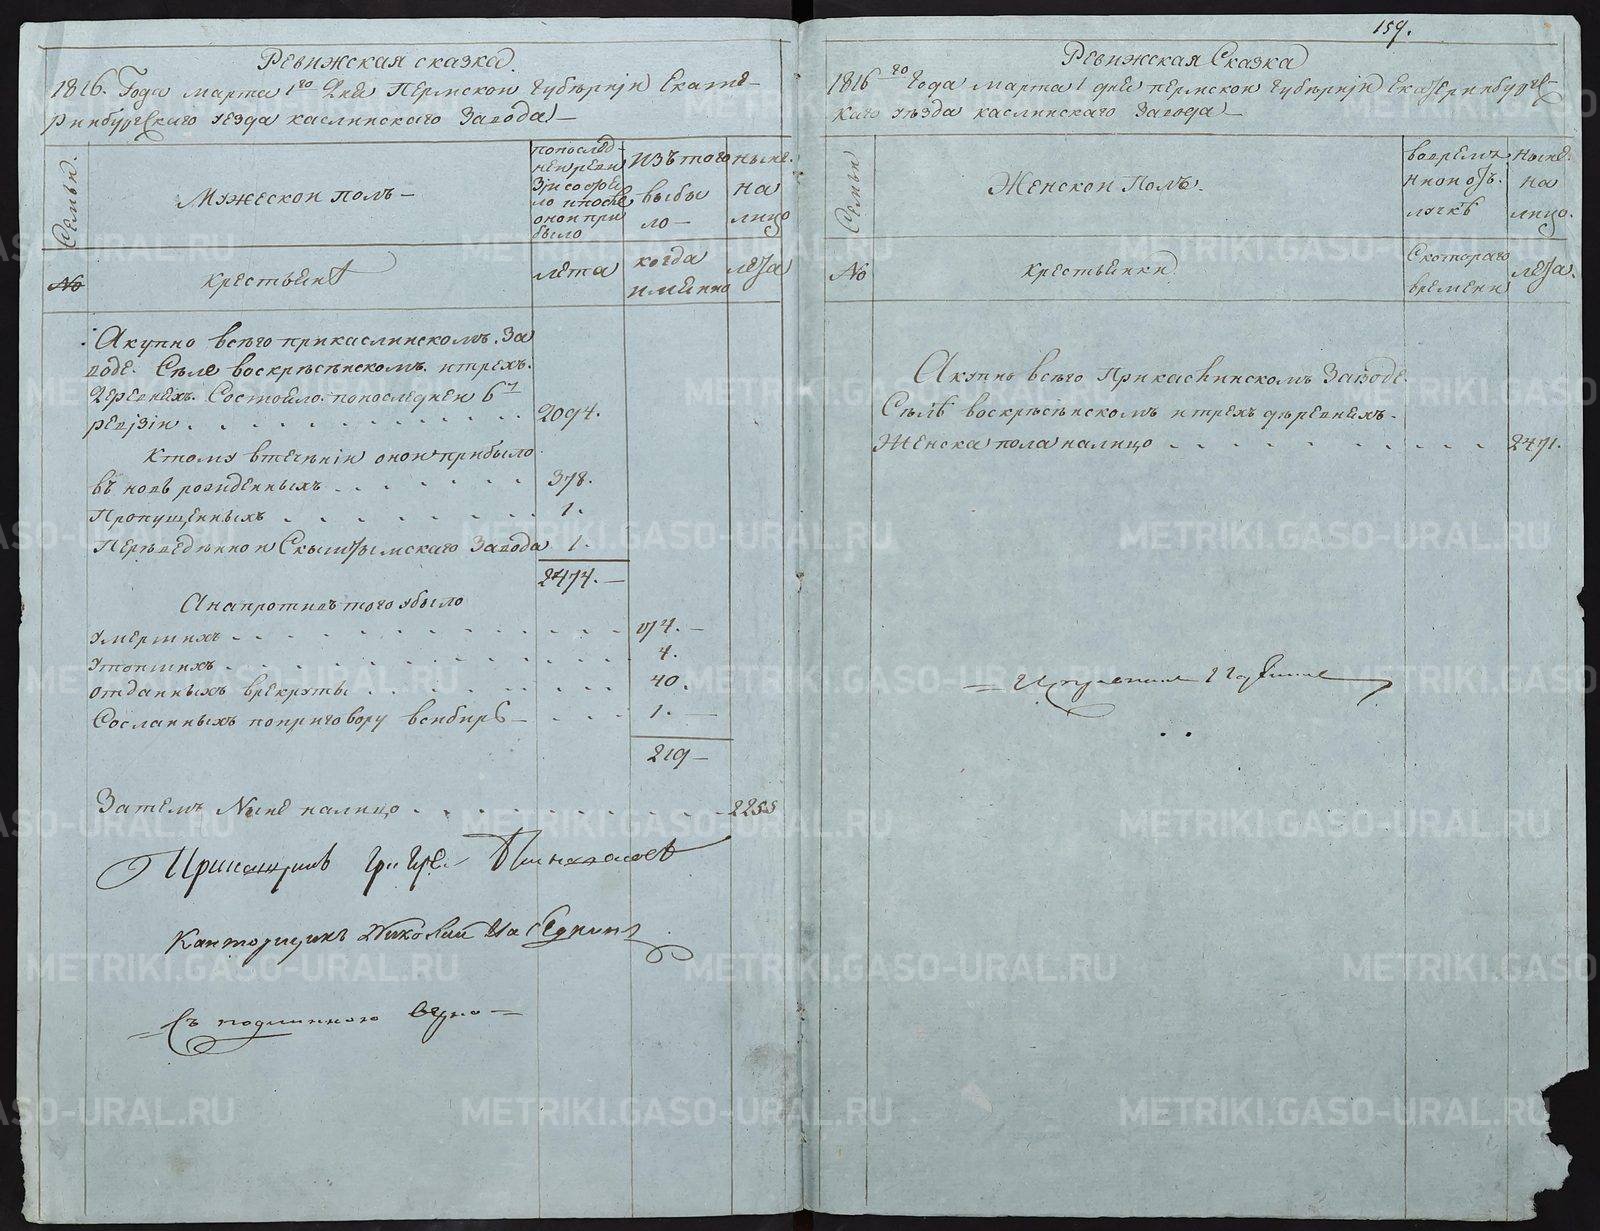 Ревижская сказка
1816. Года марта 1го Дня Пермской Губернiи Екате-
ринбургскаго уезда каслинскаго Завода
Семьи.
Мужеской полъ
по послед-
ней реви
зiи состоя
ло и после
оной при
было
изъ того
выбы
ло
ныне.
на
лицо
No
крестьяня
лета
когда
имянно
лета
А купно всего прикаслинскомъ. За
воде. Селе воскресенскомъ. итрехъ.
Деревняхъ. Состояло. попоследней 6й
ревизiи 2094.
Ктому втеченiи оной прибыло
въ новь рожденныхъ 378.
Пропущенныхъ 1.
Переведенной Скыштымскаго Завода 1.
2474.
Анапротивъ того убыло
умершихъ 174.
утопшихъ 4.
отданныхъ врекруты 40.
Сосланныхъ поприговору всибирь 1.
219
Затемъ Ныне налицо 2255
Прикащикъ
Канторщикъ Николай
Съ подлиннымъ верно
159.
Ревижская Сказка
1816го Года Марта 1 дня пермской Губернiи Екатеринбургс-
каго уезда каслинскаго Завода
Семьи
Женской Полъ.
вовремян
ной отъ
лучкъ
Ныне.
на
лицо.
No
крестьянки
Скотораго
времени
лета.
А купнъ всего Прикаслинскомъ Заводе.
Селъ воскресенскомъ итрехъ деревняхъ.
Женска пола налицо 2471.
METRIKI.GASO-URAL.RU